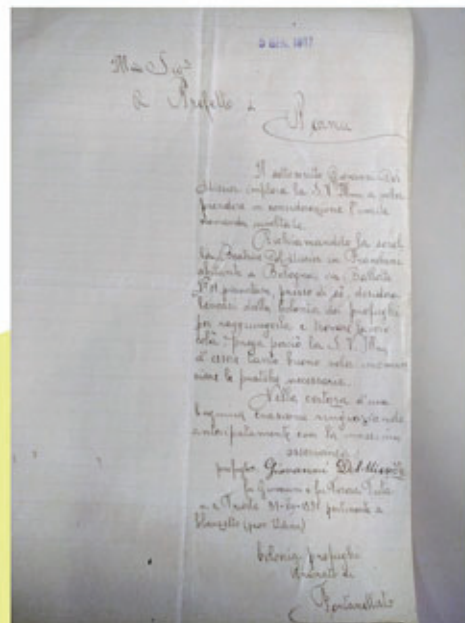 9 DIC. 1917
Ill.mo Sig.r
Prefetto di
Parma
Il sottoscritto Giovanni Del
Missier implora la S. V. Ill.ma a voler
prendere in considerazione l'umile
domanda
Richiamandolo la sorel
la Beatrice Del Missier in
abitante a Bologna via Battista
N° 21 presso di sé, desidera
dalla Colonia dei profughi
per raggiungerla e trovare lavoro
colà, prega perciò la S. V. Ill.ma
d'esser tanto buono
le pratiche necessarie.
Nella certezza d'una
benigna evasione ringraziando
anticipatamente con la massima
osservanza
profugo Giovanni Del Missier
fu Giovanni e fu Teresa
pertinente a
Clauzetto (prov. Udine)
Colonia profughi
di
Fontanellato